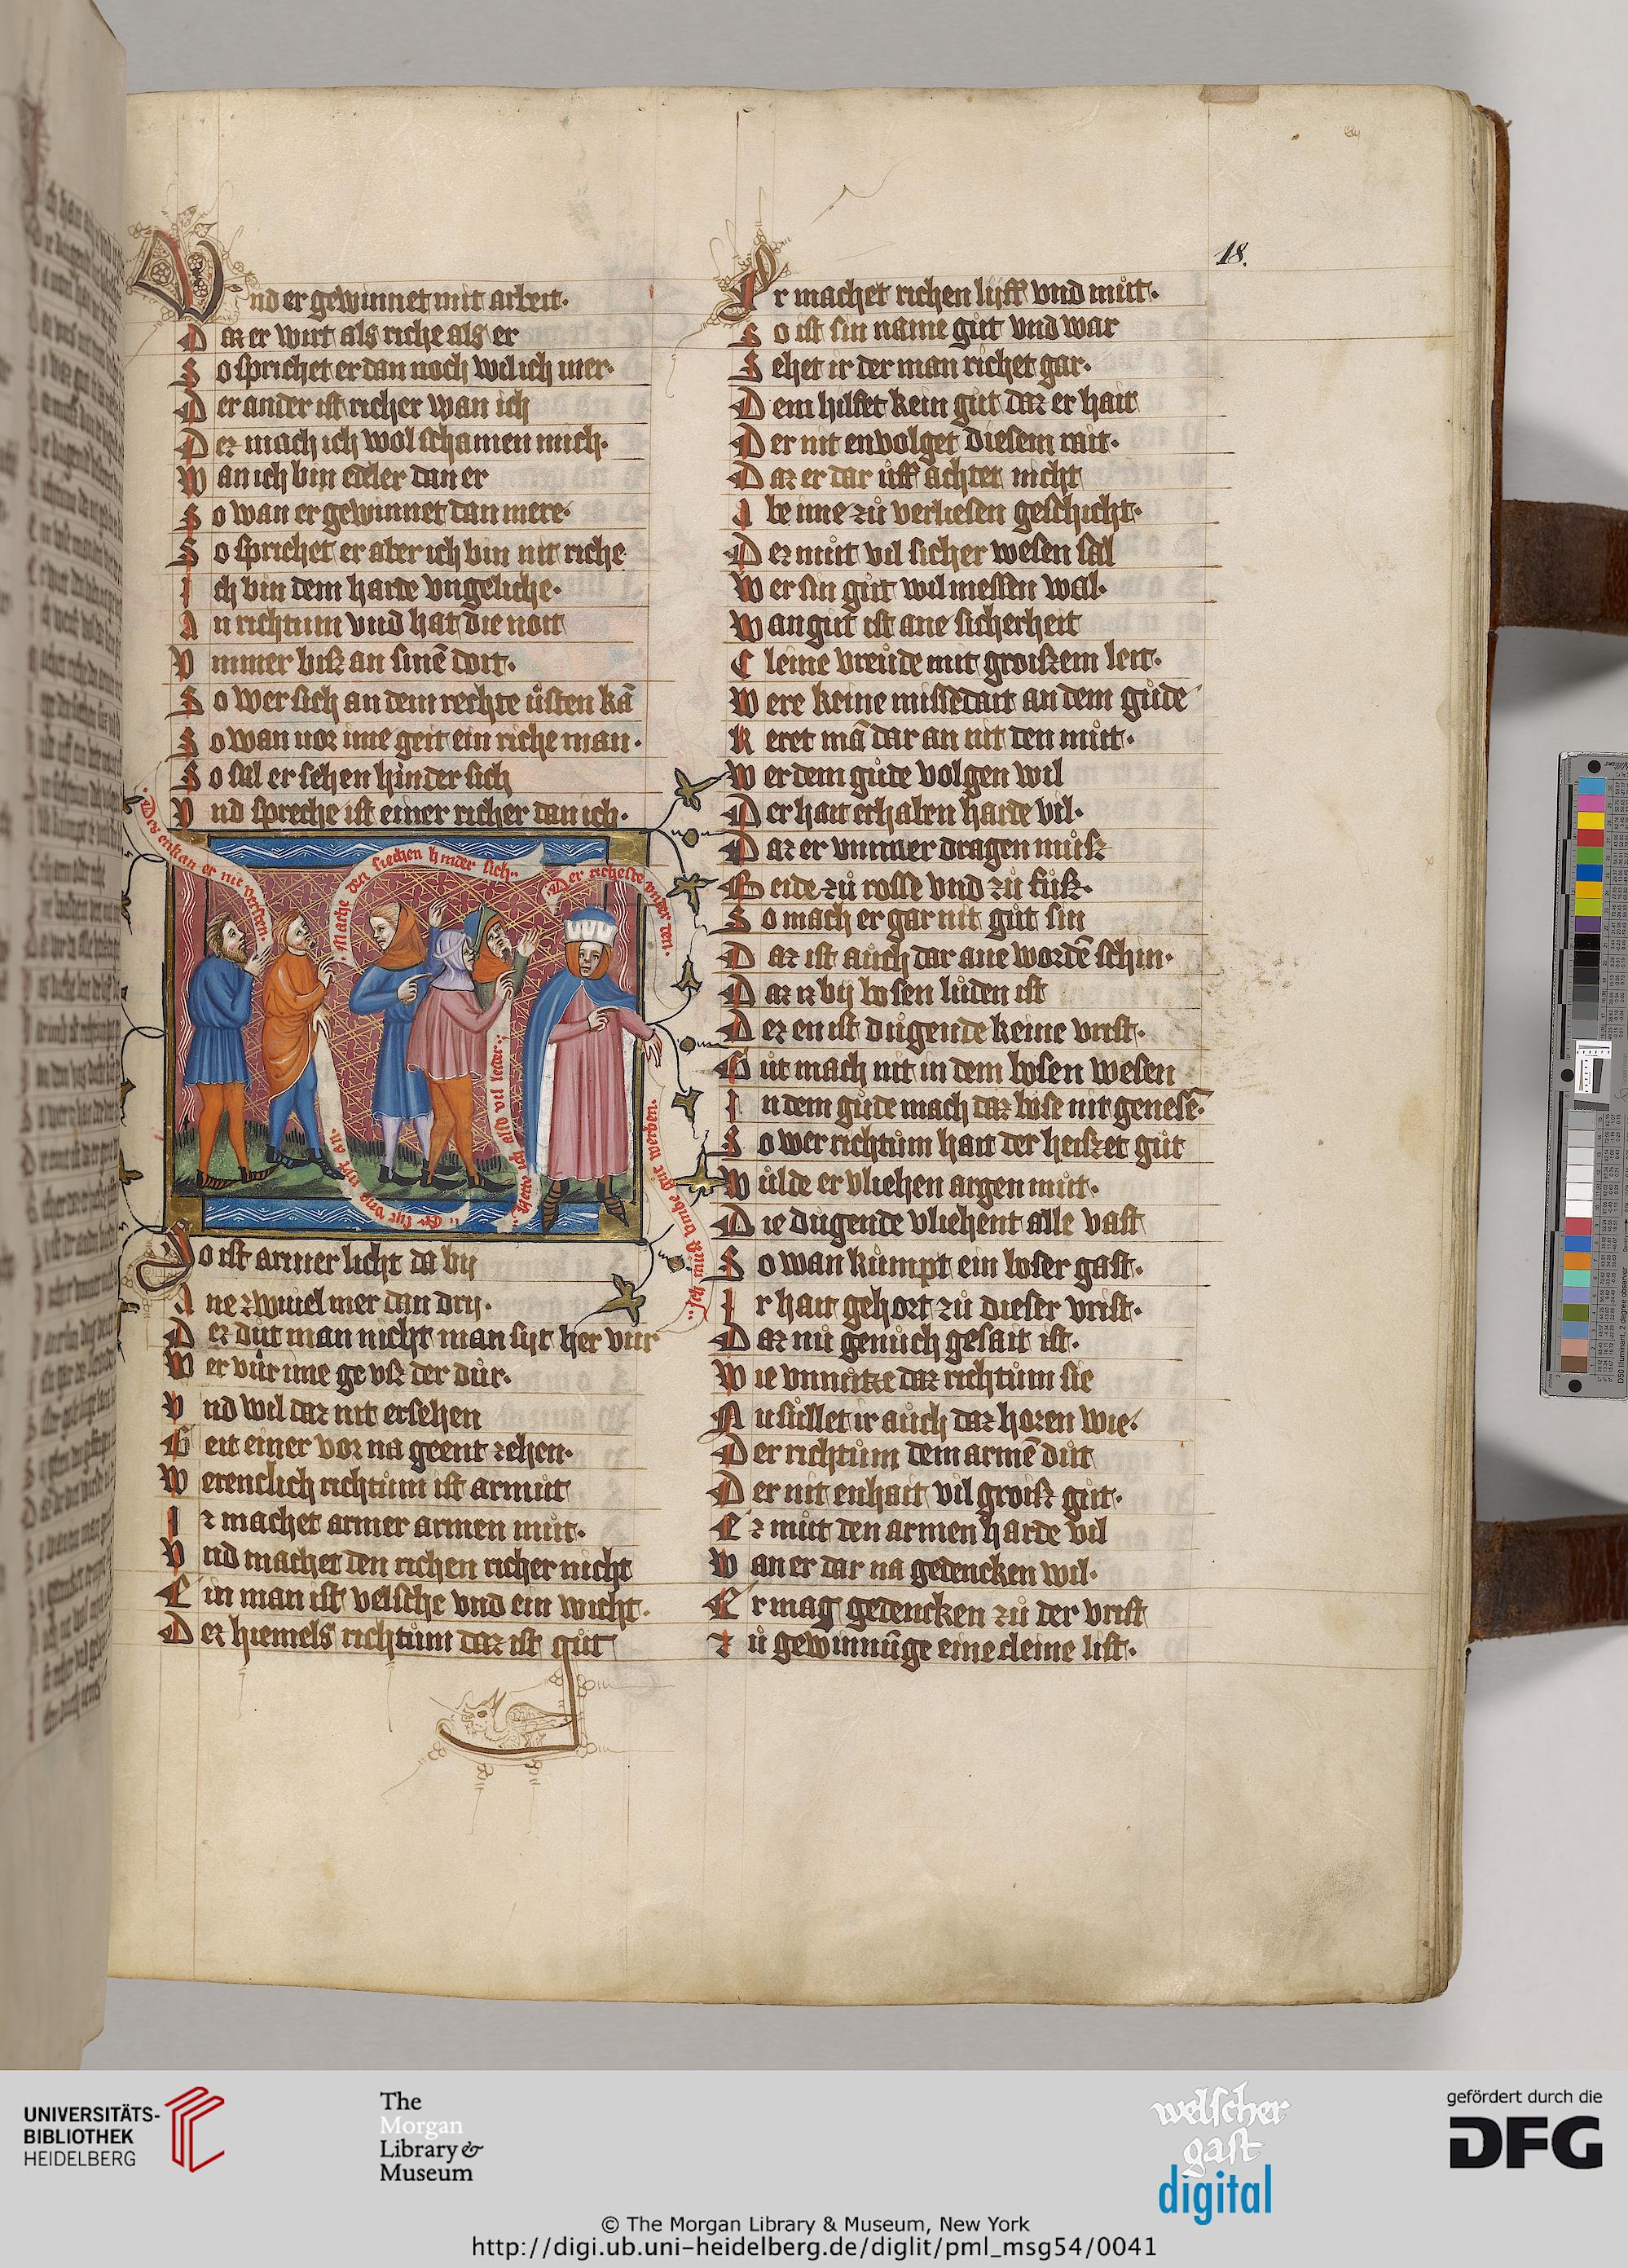 Vnd er gewinnet mit arbeit·
Daz er wirt als riche als er
So sprichet er dan noch wil ich mer·
Der ander ist richer wan ich
Dez mach ich wol schamen mich·
Wan ich bin edeler dan er
So wan er gewinnet dan mere·
So sprichet er aber ich bin nit riche
Ich bin dem harte vngeliche·
An richtum vnd hat die nott
Ymmer biß an sinē doit·
So wer sich an dem rechte
So wan uor ime geit ein riche man·
So sal er sehen hinder sich
Vnd spreche ist einer richer dan ich·
·Dez enkan er nit
·Mache den siechen hinder sich·
·Der richeste vnder den·
·Hette ich also vil leider·
·Ich muß vmbe gut werben·
So ist armer licht da bij
Ane zwiuel mer dan drij·
Dez dut man nicht man siht her vur
Wer vur ime ge vß der dur·
Vnd wil daz nit ersehen
Geit einer vor na geent zehen·
Werentlich richtům ist armůt
Iz machet armer armen můt·
Vnd machet den richen richer nicht
Ein man ist velsche vnd ein wicht·
Dez hiemels richtům daz ist gůt
18.
Er machet richen lijff vnd můt·
So ist sin name gůt vnd war
Sehet ir der man richet gar·
Dem hilfet kein gůt daz er hait
Der nit envolget diesem rait·
Daz er dar ůff achtet nicht
Abe ime zů verliesen geschicht·
Dez můt vil sicher wesen sal
Wer sin gůt wil messen wal·
Wan gůt ist ane sicherheit
Cleine vreůde mit groißem leit·
Were keine missedait an dem gůde
Keret mā dar an nit den můt·
Wer dem gůde volgen wil
Der hait erhabn harde vil·
Daz er vmmer dragen můß
Beide zů rosse vnd zů fůß·
So mach er gar nit gůt sin
Daz ist aůch dar ane wordē schin·
Daz iz bij bosen lůden ist
Dez en ist důgende keine vrist·
Gůt mach nit in dem bosen wesen
In dem gůde mach daz bose nit genesē·
So wer richtům hait der heißet gůt
Wůlde er vliehen argen můt·
Die důgende vliehent alle vast
So wan kůmpt ein boser gast·
Ir hait gehort zů dieser vrist·
Daz nů genůch gesait ist·
Wie vnnůtze daz richtům sie
Nu sůllet ir aůch daz horen wie·
Der richtům dem armē důt
Der nit enhait vil groiß gůt·
Ez můt den armen harde vil
Wan er dar na gedencken wil·
Er mag gedencken zů der vrist
Zů gewinnůge eine cleine list·
UNIVERSITÄTS-
BIBLIOTHEK
HEIDELBERG
The
Morgan
Library &
Museum
welscher
gast
digital
gefördert durch die
DFG
© The Morgan Library & Museum, New York
http://digi.ub.uni-heidelberg.de/diglit/pml_msg54/0041